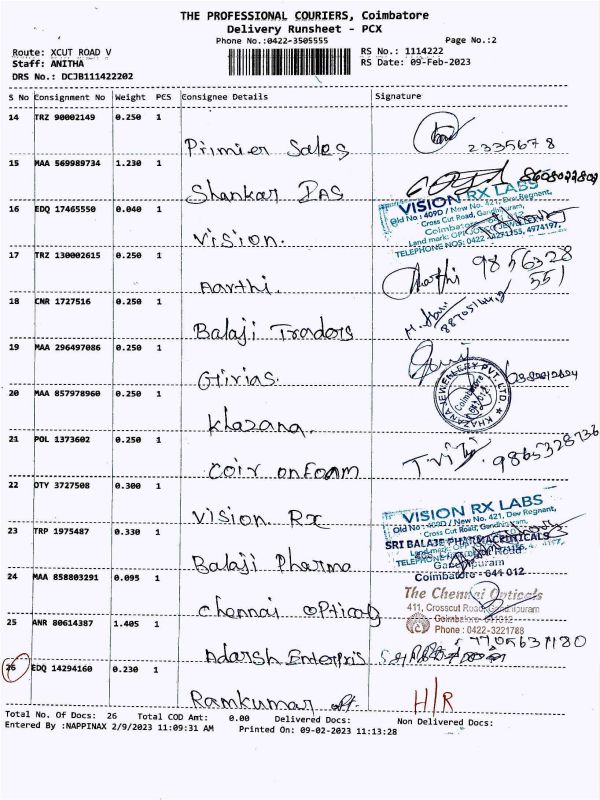 THE PROFESSIONAL COURIERS, Coimbatore
Delivery Runsheet - PCX
Phone No.:0422-3505555
Page No.:2
Route: XCUT ROAD V
RS No.: 1114222
Staff: ANITHA
RS Date: 09-Feb-2023
DRS No.: DCJB111422202
S No Consignment No Weight PCS Consignee Details Signature
14 TRZ 90002149 0.250 1
Primier Sales 2335678
15 MAA 569989734 1.230 1
Shankar IAS
16 EDQ 17465550 0.040 1
VISION RX LABS
Old No : 409D / New No. 421, Dev Regnent,
Cross Cut Road, Gandhipuram,
Coimbatore
Vision.
TELEPHONE NOS: 0422 4974197,
17 TRZ 130002615 0.250 1
Aarthi. Aarthi 9856328
551
18 CNR 1727516 0.250 1
Balaji Traders
19 MAA 296497086 0.250 1
Girias.
20 MAA 857978960 0.250 1
KHAZANA JEWELLERY PVT. LTD
Coimbatore
Khazana.
21 POL 1373602 0.250 1
Coir on Foam 9865328736
22 DTY 3727508 0.300 1
Vision Rx
VISION RX LABS
Old No : 409D / New No. 421, Dev Regnant,
Cross Cut Road, Gandhipuram,
23 TRP 1975487 0.330 1
SRI BALAJE PHARMACEUTICALS
Balaji Pharma
Gandhipuram
Coimbatore - 641 012
24 MAA 858803291 0.095 1
Chennai Opticals
The Chennai Opticals
411, Crosscut Road, Gandhipuram
Coimbatore-641012
Phone : 0422-3221788
25 ANR 80614387 1.405 1
Adarsh Enterpris
26 EDQ 14294160 0.230 1
Ramkumar H/R
Total No. Of Docs: 26 Total COD Amt: 0.00 Delivered Docs: Non Delivered Docs:
Entered By :NAPPINAX 2/9/2023 11:09:31 AM Printed On: 09-02-2023 11:13:28